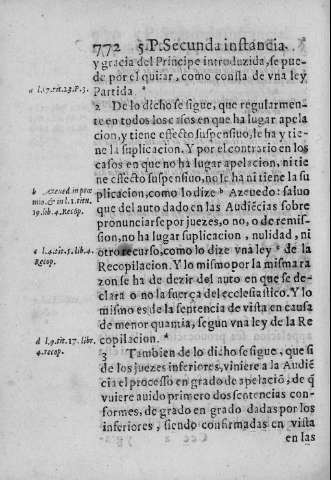 772 5.P. Secunda instancia.
y gracia del Principe introduzida, se pue-
de por el quitar, como consta de vna ley
a l.17.tit.23.P.3. Partida a
2 De lo dicho se sigue, que regularmen-
te en todos los casos en que ha lugar apela
cion, y tiene effecto suspensiuo, le ha y tie-
ne la suplicacion. Y por el contrario en los
casos en que no ha lugar apelacion, ni tie
ne effecto suspensiuo, no le ha ni tiene la su
b Azeued. in proe plicacion, como lo dize b Azeuedo: saluo
mio. & in l.1.titu. que del auto dado en las Audiẽcias sobre
19.lib.4.Recop. pronunciarse por juezes, o no, o de remis-
sion, no ha lugar suplicacion, nulidad, ni
c l.4.tit.5.lib.4. otro recurso, como lo dize vna ley c de la
Recop. Recopilacion. Y lo mismo por la misma ra
zon se ha de dezir del auto en que se de-
clara o no la fuerça del ecclesiastico. Y lo
mismo es de la sentencia de vista en causa
de menor quantia, segun vna ley de la Re
d l.9.tit.17.libr. copilacion. d
4.recop. 3 Tambien de lo dicho se sigue, que si
de los juezes inferiores, viniere a la Audiẽ
cia el processo en grado de apelaciõ, de q̃
vuiere auido primero dos sentencias con-
formes, de grado en grado dadas por los
inferiores, siendo confirmadas en vista
en las